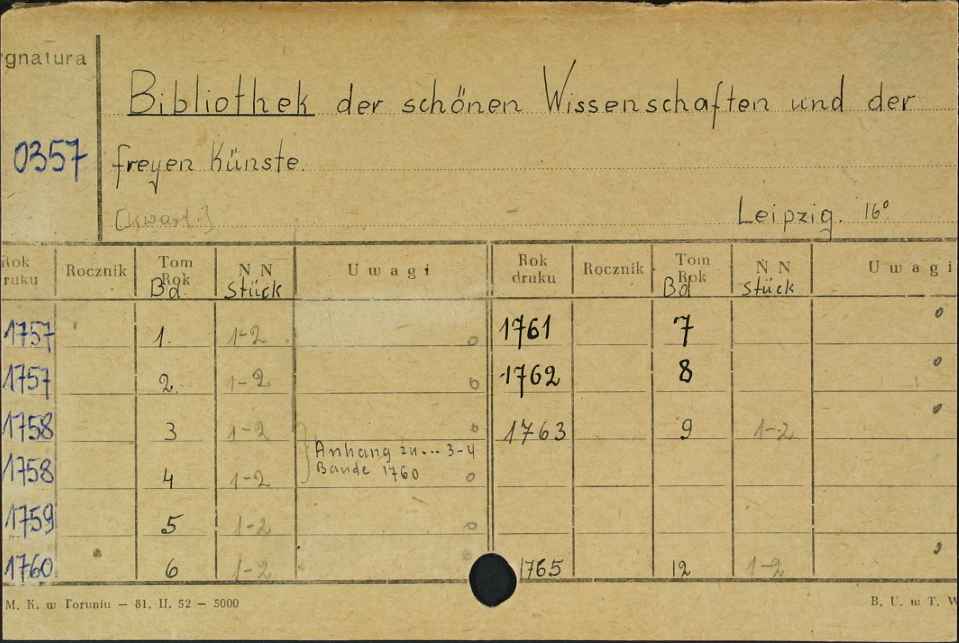 gnatura
Bibliothek der schönen Wissenschaften und der
0357
freyen Künste.
[kwart.]
Leipzig. 16°
Rok druku Rocznik Tom Rok Bd N N Stück Uwagi Rok druku Rocznik Tom Rok Bd N N Stück Uwagi
1757 1. 1-2 1761 7
1757 2. 1-2 1762 8
1758 3 1-2 1763 9 1-2
Anhang zu... 3-4
Bande 1760
1758 4 1-2
1759 5 1-2
1760 6 1-2 1765 12 1-2
M. K. w Toruniu — 81. II. 52 — 5000
B. U. w T. W